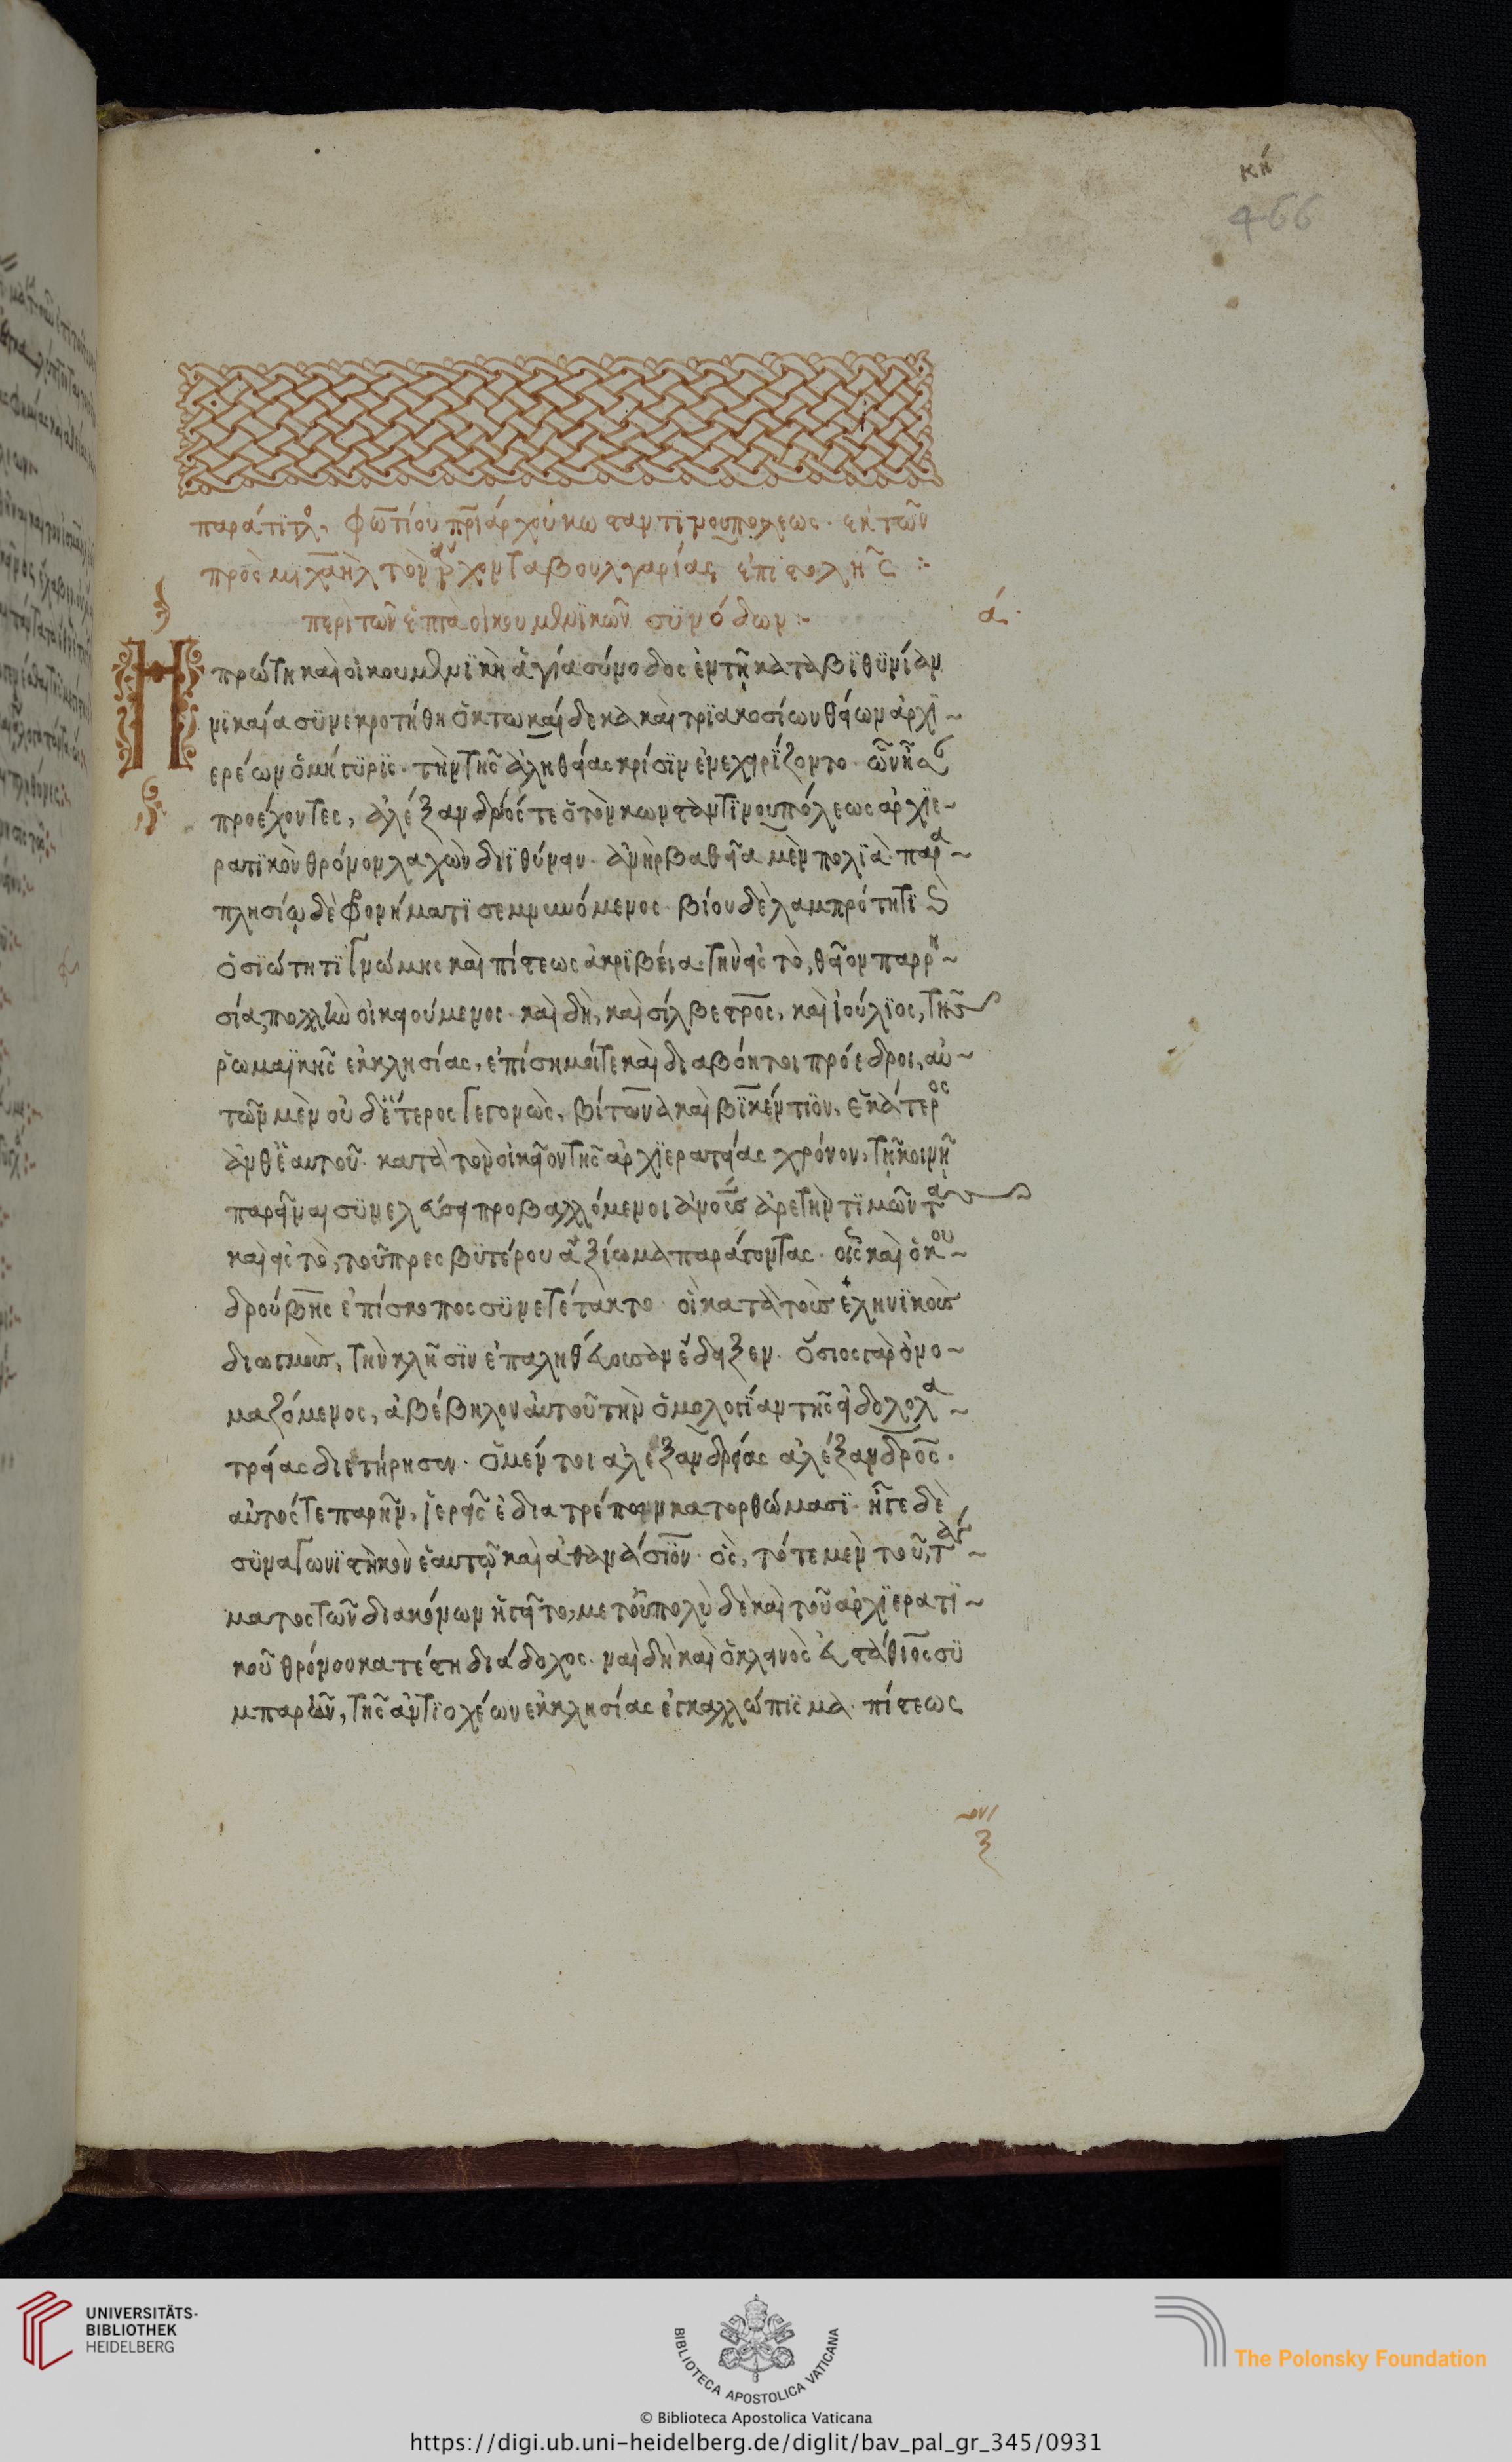 κή
466
παράτιτλ. φωτίου πριάρχου κωσταντϊνουπολεως. ἐκ τῶν
πρὸς μϊχαὴλ τὸν ἄρχοντα βουλγαρίας ἐπϊστολῆς :
περὶ τῶν ἑπτὰ οἰκουμενϊκῶν σϋνόδων :
ά.
Η πρώτη καὶ οἰκουμενϊκὴ ἁγία σύνοδος ἐν τῆ κατὰ βϊθϋνίαν
νϊκαία σϋνεκροτήθη ὀκτωκαίδεκα καὶ τρϊακοσίων θείων ἀρχϊ~
ερέων ὁμήγϋρϊς. τὴν τῆς ἀληθείας κρίσϊν ἐνεχειρίζοντο. ὧν ἦσαν
προέχοντες, ἀλέξανδρός τε ὁ τὸν κωνσταντϊνουπόλεως ἀρχϊε~
ρατϊκὸν θρόνον λαχὼν διϊθύνειν. ἀνὴρ βαθεῖα μὲν πολϊὰ. παρα~
πλησίω δὲ φρονήματϊ σεμνυνόμενος. βίου δὲ λαμπρότητϊ καὶ
ὁσϊώτητϊ γνώμης καὶ πίστεως ἀκρϊβεία. τὴν εἰς τὸ, θεῖον παρρη~
σίας πολλὴν οἰκειούμενος. καὶ δὴ, καὶ σίλβεστρος, καὶ ἰούλϊος, τῆς
ῥωμαϊκῆς ἐκκλησίας, ἐπίσημοί τε καὶ διαβόητοι πρόεδροι, αὐ~
τῶν μὲν οὐδέτερος γεγονὼς, βίτωνα καὶ βϊκέντϊον, ἑκάτερος
ἀνθ' ἑαυτοῦ. κατὰ τὸν οἰκεῖον τῆς ἀρχϊερατείας χρόνον, τῆ κοινῆ
παρεῖναι σϋνελεύσει προβαλλόμενοι ἀνοὺς ἀρετὴν τϊμῶντας
καὶ εἰς τὸ, τοῦ πρεσβϋτέρου ἀξίωμα παράγοντας. οἷς καὶ ὁ κου~
δρούβης ἐπίσκοπος σϋνετέτακτο. οἱ κατὰ τοὺς ἑληνϊκοὺς
διωγμοὺς, τὴν κλῆσϊν ἐπαληθεύουσαν ἔδειξεν. ὅσιος γὰρ ὀνο~
μαζόμενος, ἀβέβηλον αὐτοῦ τὴν ὁμολογΐαν τῆς εἰδολολα~
τρείας διετήρησεν. ὁ μέντοι ἀλεξανδρείας ἀλέξανδρος.
αὐτός τε παρῆν, ἱεροῖς ἐδιατρέπων κατορθώμασϊ. ἦγε δὲ
σϋναγωνϊστὴκὸν ἑαυτῶ καὶ ἀθανάσϊον. ὃς, τότε μὲν τοῦ, ταγ~
ματος τῶν διακόνων ἡγεῖτο, μετ' οὐπολὺ δὲ καὶ τοῦ ἀρχϊερατϊ~
κοῦ θρόνου κατέστη διάδοχος. ναὶ δὴ καὶ ὁ κλεινὸς εὐστάθϊος σϋ
μπαρῶν, τῆς ἀντϊοχέων ἐκκλησίας ἐγκαλλώπϊσμα. πίστεως
UNIVERSITÄTS-
BIBLIOTHEK
HEIDELBERG
BIBLIOTECA APOSTOLICA VATICANA
The Polonsky Foundation
© Biblioteca Apostolica Vaticana
https://digi.ub.uni-heidelberg.de/diglit/bav_pal_gr_345/0931